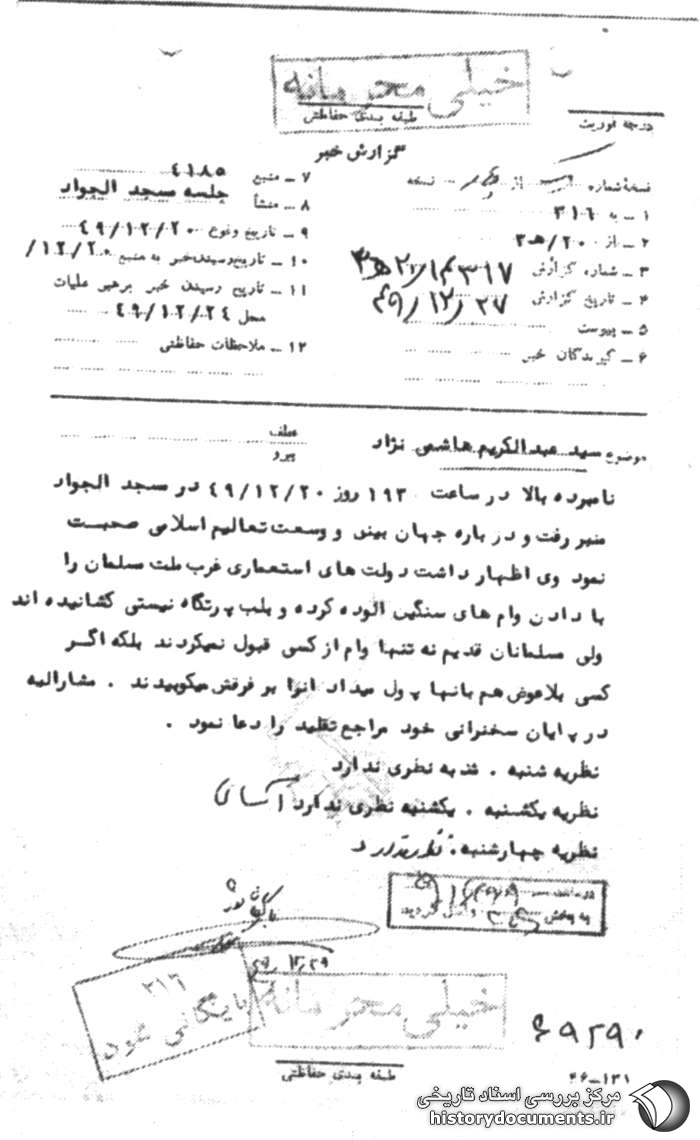 خیلی محرمانه
طبقه بندی حفاظتی
درجه فوریت
گزارش خبر
نسخهٔ شماره از نسخه
۱ ــ به ۳۱۶
۲ ــ از ۲۰/ه۳
۳ ــ شماره گزارش
۴ ــ تاریخ گزارش ۴۹/۱۲/۲۷
۵ ــ پیوست
۶ ــ گیرندگان خبر
۷ ــ منبع ۴۱۸۵
۸ ــ منشأ جلسه مسجد الجواد
۹ ــ تاریخ وقوع ۴۹/۱۲/۲۰
۱۰ ــ تاریخ رسیدن خبر به منبع ۱۲/۲۰/
۱۱ ــ تاریخ رسیدن خبر برهبر عملیات
محل ۴۹/۱۲/۲۴
۱۲ ــ ملاحظات حفاظتی
موضوع سید عبدالکریم هاشمی نژاد
عطف
پیرو
نامبرده بالا در ساعت ۱۹۳۰ روز ۴۹/۱۲/۲۰ در مسجد الجواد
منبر رفت و در باره جهان بینی و وسعت تعالیم اسلامی صحبت
نمود وی اظهار داشت دولت های استعماری غرب ملت مسلمان را
با دادن وام های سنگین الوده کرده و بلب پرتگاه نیستی کشانیده اند
ولی مسلمانان قدیم نه تنها وام از کسی قبول نمیکردند بلکه اگر
کسی بلاعوض هم بانها پول میداد انرا بر فرقش میکوبیدند . مشارالیه
در پایان سخنرانی خود مراجع تقلید را دعا نمود .
نظریه شنبه . شنبه نظری ندارد
نظریه یکشنبه . یکشنبه نظری ندارد
نظریه چهارشنبه . نظری ندارد
به بخش واصل گردید
۴۹/۱۲/۲۹
۳۱۶
بایگانی شود
خیلی محرمانه
طبقه بندی حفاظتی
۶۹۲۹۰
۴۶-۱۳۱
مرکز بررسی اسناد تاریخی
historydocuments.ir